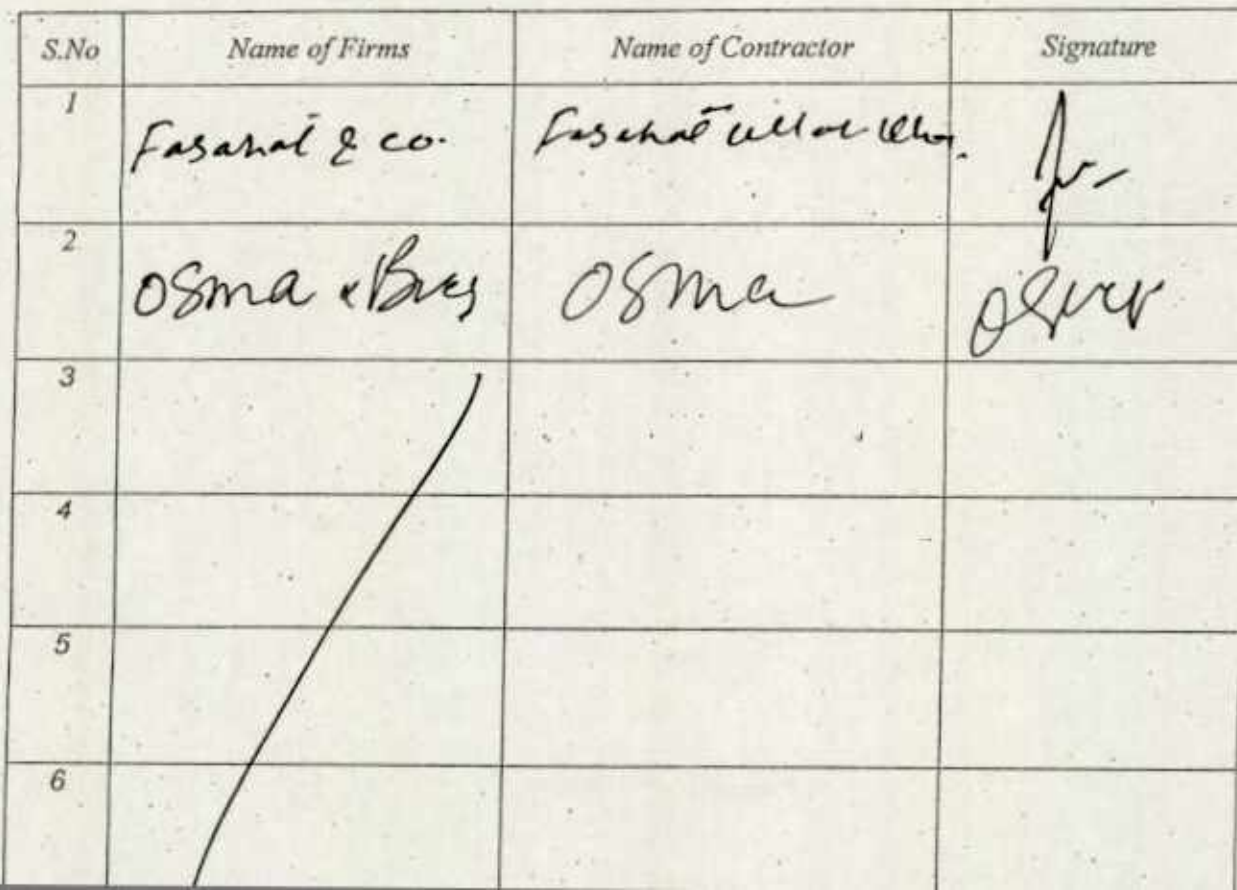 S.No Name of Firms Name of Contractor Signature
1 Fasahat & co. Fasahat ullah Khan.
2 Osma & Bros Osma
3
4
5
6